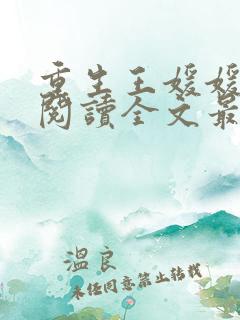 重生王媛媛
閱讀全文最
溫良
未经同意禁止转载